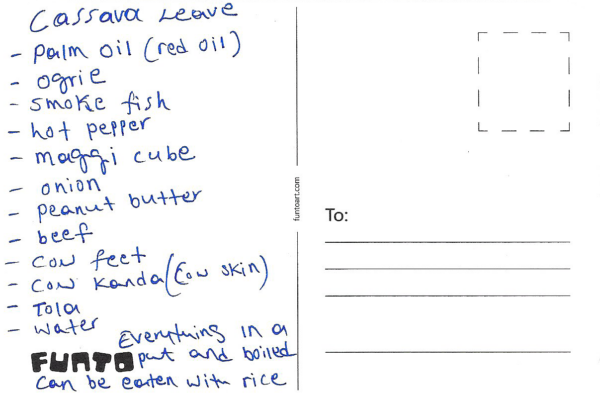 Cassava Leave
- Palm oil (red oil)
- ogrie
- smoke fish
- hot pepper
- maggi cube
- onion
- peanut butter
- beef
- cow feet
- cow Kanda (Cow skin)
- Tola
- water
Everything in a
FUNTO put and boiled
can be eaten with rice
funtoart.com
To: